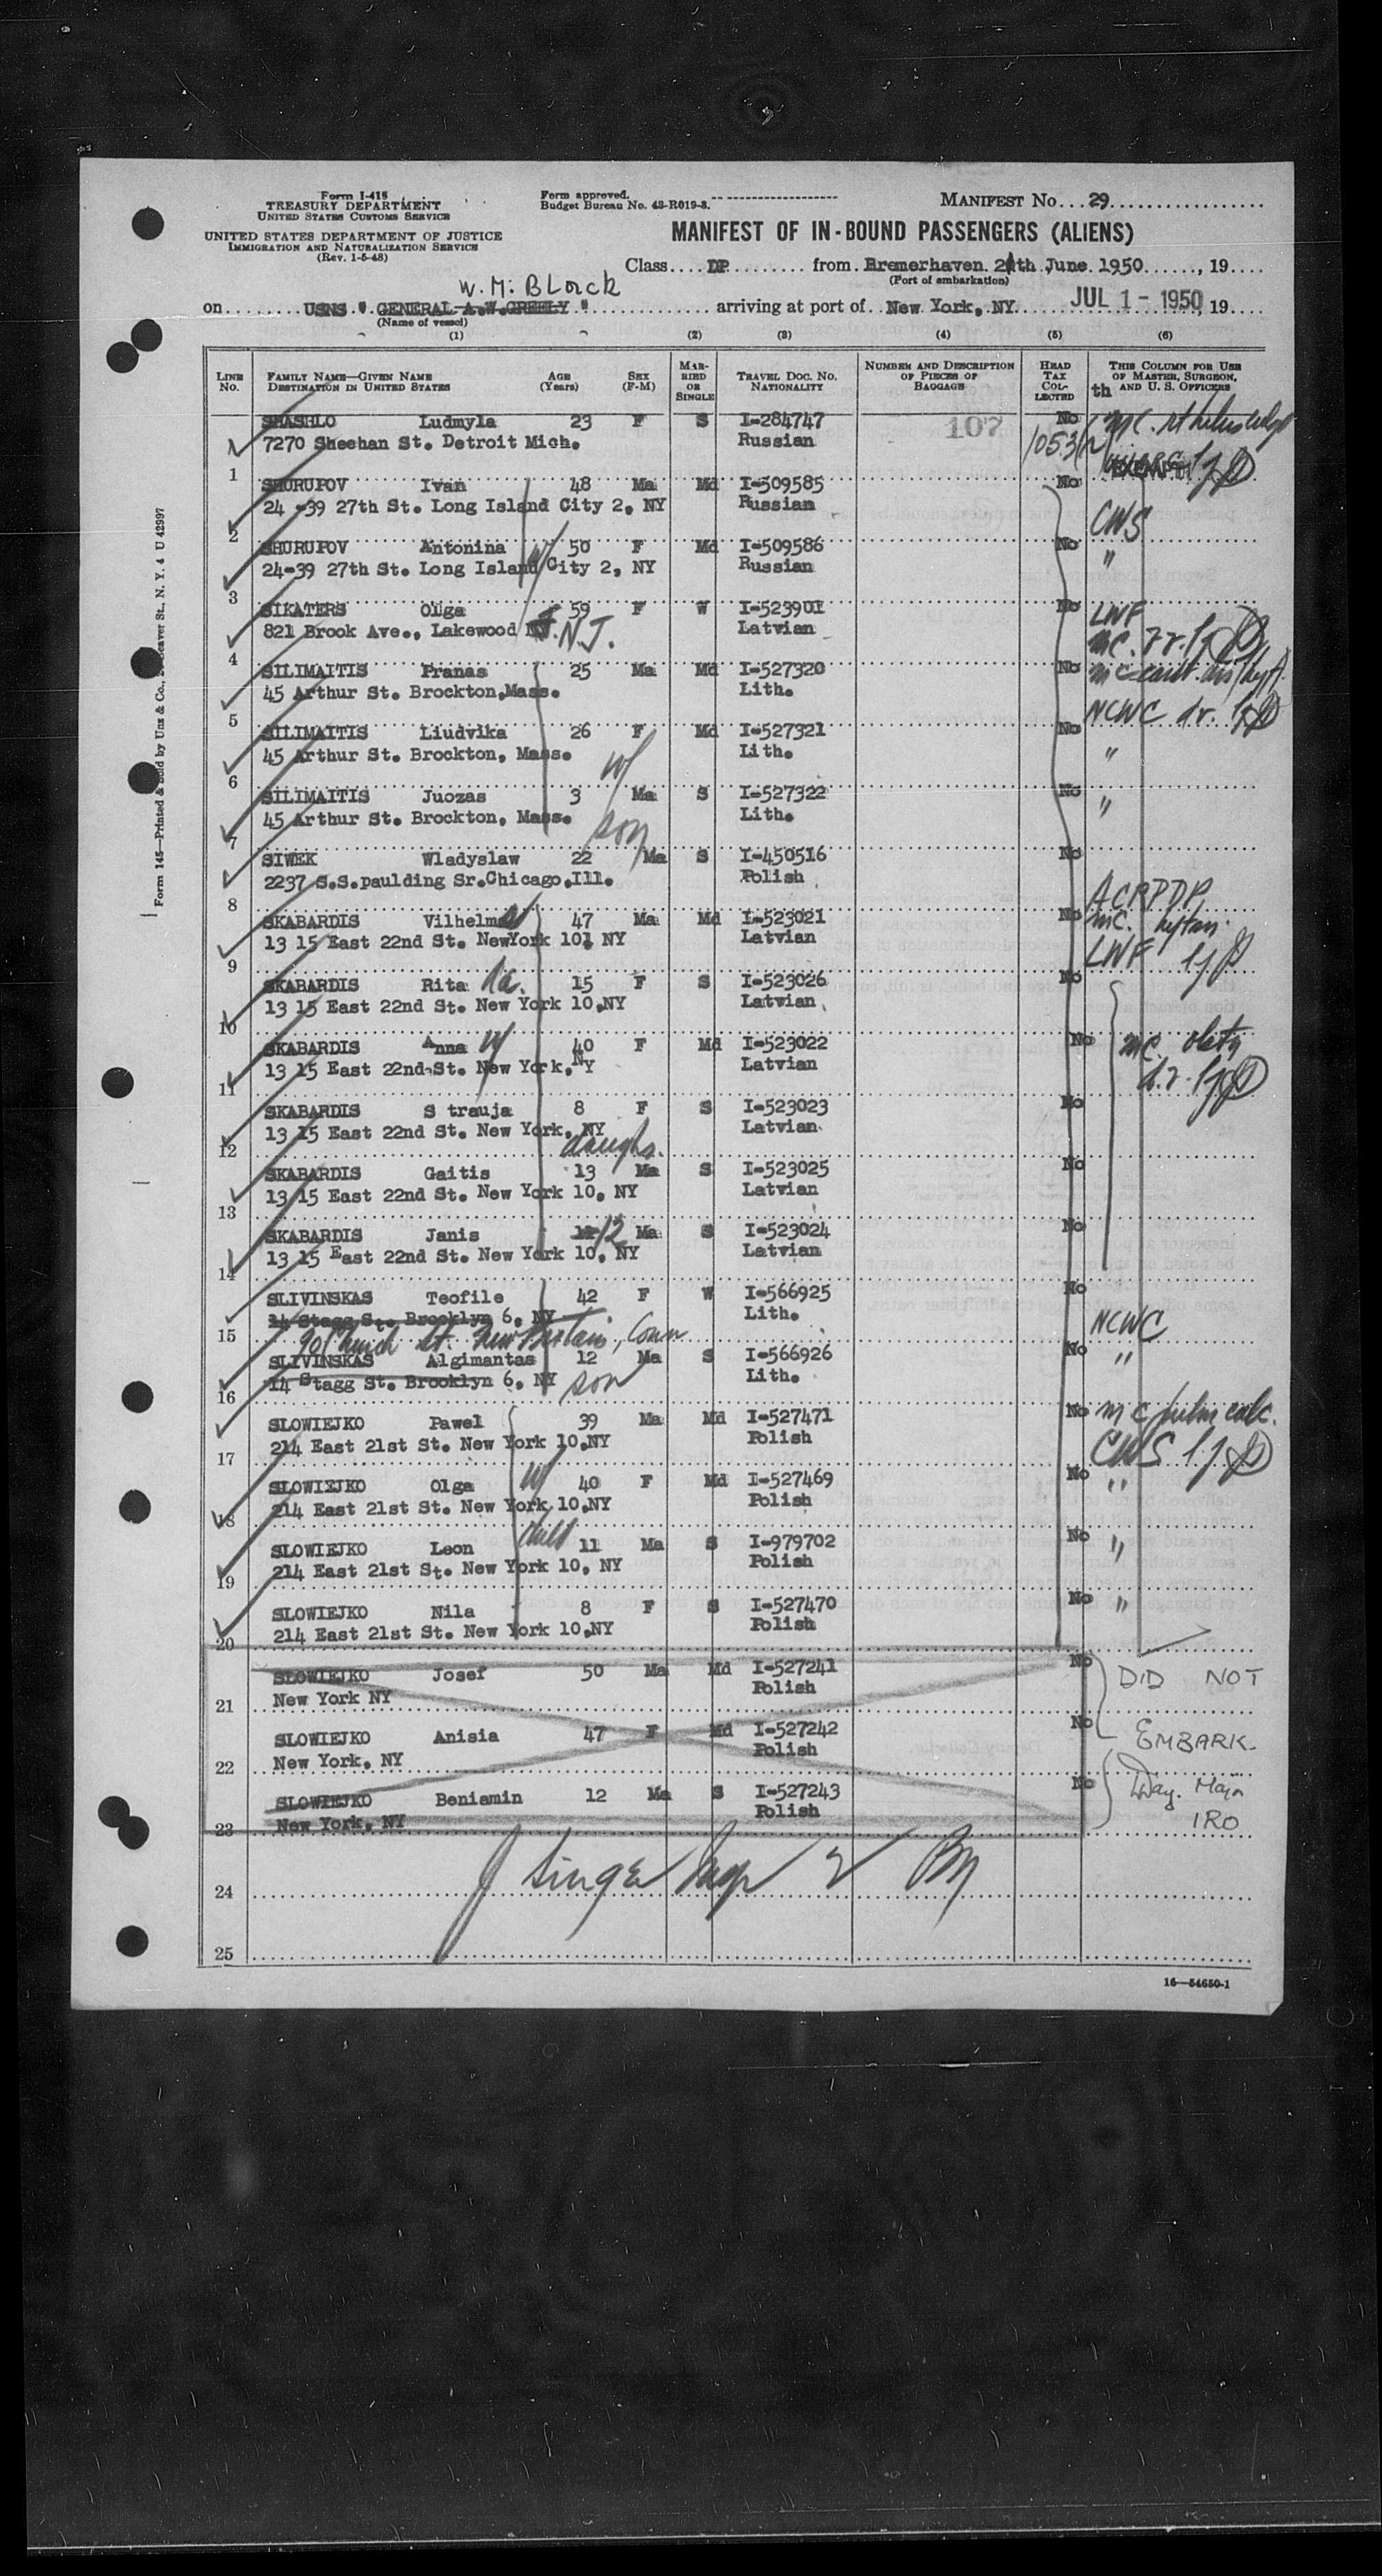 Form I-415
TREASURY DEPARTMENT
UNITED STATES CUSTOMS SERVICE
UNITED STATES DEPARTMENT OF JUSTICE
IMMIGRATION AND NATURALIZATION SERVICE
(Rev. 1-5-48)
Form approved.
Budget Bureau No. 43-R019-3.
MANIFEST No. 29
MANIFEST OF IN-BOUND PASSENGERS (ALIENS)
Class DP from Bremerhaven 21th June 1950, 19
(Port of embarkation)
W. M. BLACK
on USNS " GENERAL A.W.GREELY " arriving at port of New York, NY. JUL 1 - 1950, 19
(Name of vessel)
(1) (2) (3) (4) (5) (6)
LINE No. FAMILY NAME—GIVEN NAME DESTINATION IN UNITED STATES AGE (Years) SEX (F-M) MARRIED OR SINGLE TRAVEL DOC. NO. NATIONALITY NUMBER AND DESCRIPTION OF PIECES OF BAGGAGE HEAD TAX COLLECTED THIS COLUMN FOR USE OF MASTER, SURGEON, AND U. S. OFFICERS
th
SHASHLO Ludmyla 23 F S I-284747 107 No mc.
7270 Sheehan St. Detroit Mich. Russian
1
SHURUPOV Ivan 48 Ma Md I-509585 No
24 -39 27th St. Long Island City 2, NY Russian CWS
2
SHURUPOV Antonina w/ 50 F Md I-509586 No "
24-39 27th St. Long Island City 2, NY Russian
3
SIKATERS Olga 59 F W I-523901 No LWF
821 Brook Ave., Lakewood N.J. Latvian mc.
4
SILIMAITIS Pranas 25 Ma Md I-527320 No mc
45 Arthur St. Brockton,Mass. Lith. NCWC
5
SILIMAITIS Liudvika 26 F Md I-527321 No
45 Arthur St. Brockton, Mass. w/ Lith. "
6
SILIMAITIS Juozas 3 Ma S I-527322 No
45 Arthur St. Brockton, Mass. son Lith. "
7
SIWEK Wladyslaw 22 Ma S I-450516 No
2237 S.S.paulding Sr.Chicago.Ill. Polish ACRPDP
8
SKABARDIS Vilhelms 47 Ma Md I-523021 No mc.
13 15 East 22nd St. NewYork 10, NY Latvian LWF
9
SKABARDIS Rita da. 15 F S I-523026 No
13 15 East 22nd St. New York 10,NY Latvian
10
SKABARDIS Anna w/ 40 F Md I-523022 No mc.
13 15 East 22nd St. New York, NY Latvian
11
SKABARDIS S trauja 8 F S I-523023 No
13 15 East 22nd St. New York, NY Latvian
12
SKABARDIS Gaitis 13 Ma S I-523025 No
13 15 East 22nd St. New York 10, NY Latvian
13
SKABARDIS Janis 12 Ma S I-523024 No
13 15 East 22nd St. New York 10, NY Latvian
14
SLIVINSKAS Teofile 42 F W I-566925 No
14 Stagg St. Brooklyn 6, NY Lith. NCWC
15 90 Church St. New Britain, Conn
SLIVINSKAS Algimantas 12 Ma S I-566926 No "
14 Stagg St. Brooklyn 6, NY son Lith.
16
SLOWIEJKO Pawel 39 Ma Md I-527471 No mc pulm calc.
214 East 21st St. New York 10,NY Polish CWS
17
SLOWIEJKO Olga w/ 40 F Md I-527469 No "
214 East 21st St. New York 10,NY Polish
18
SLOWIEJKO Leon child 11 Ma S I-979702 No "
214 East 21st St. New York 10, NY Polish
19
SLOWIEJKO Nila 8 F S I-527470 No "
214 East 21st St. New York 10,NY Polish
20
SLOWIEJKO Josef 50 Ma Md I-527241 No DID NOT
New York NY Polish
21
SLOWIEJKO Anisia 47 F Md I-527242 No EMBARK
New York, NY Polish
22
SLOWIEJKO Beniamin 12 Ma S I-527243 No
New York, NY Polish IRO
23
24
25
16—54650-1